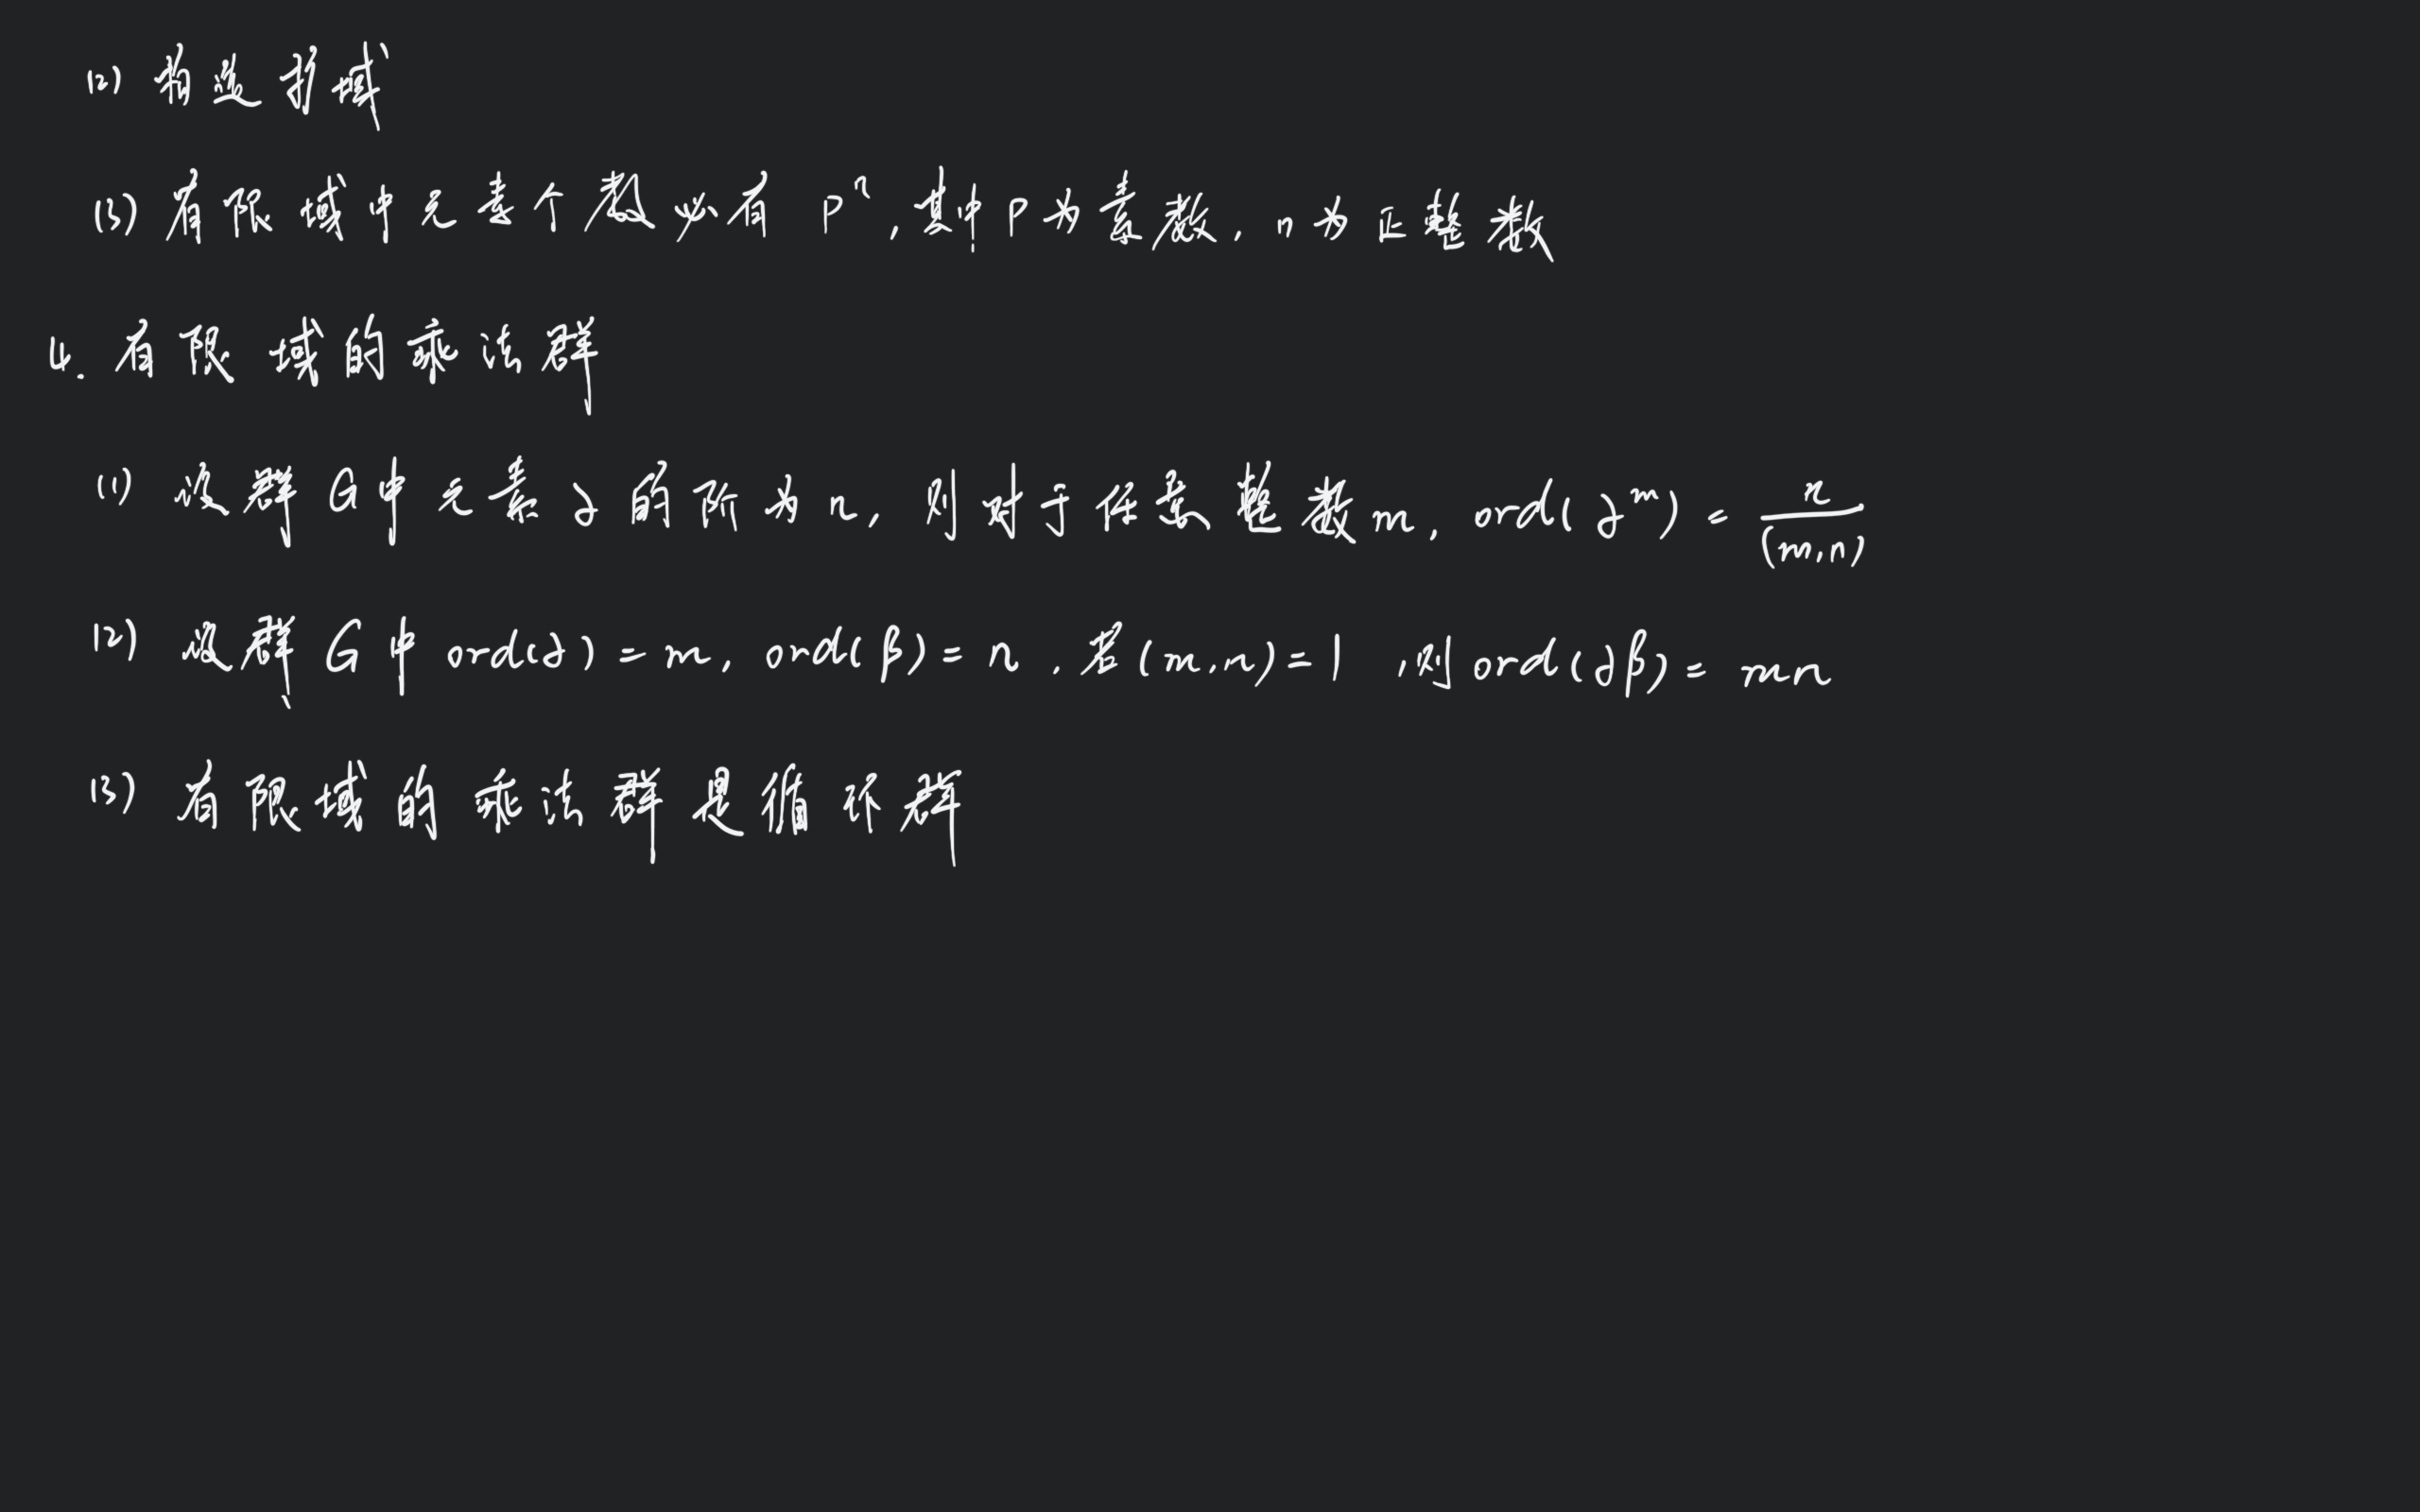 (2) 构造扩域
(3) 有限域中元素个数必有 pⁿ, 其中 p 为素数, n 为正整数
4. 有限域的乘法群
(1) 设群 G 中元素 ∂ 的阶为 n, 则对于任意整数 m, ord(∂ᵐ) = n/(m,n)
(2) 设群 G 中 ord(∂) = m, ord(β) = n, 若 (m,n) = 1, 则 ord(∂β) = mn
(3) 有限域的乘法群是循环群